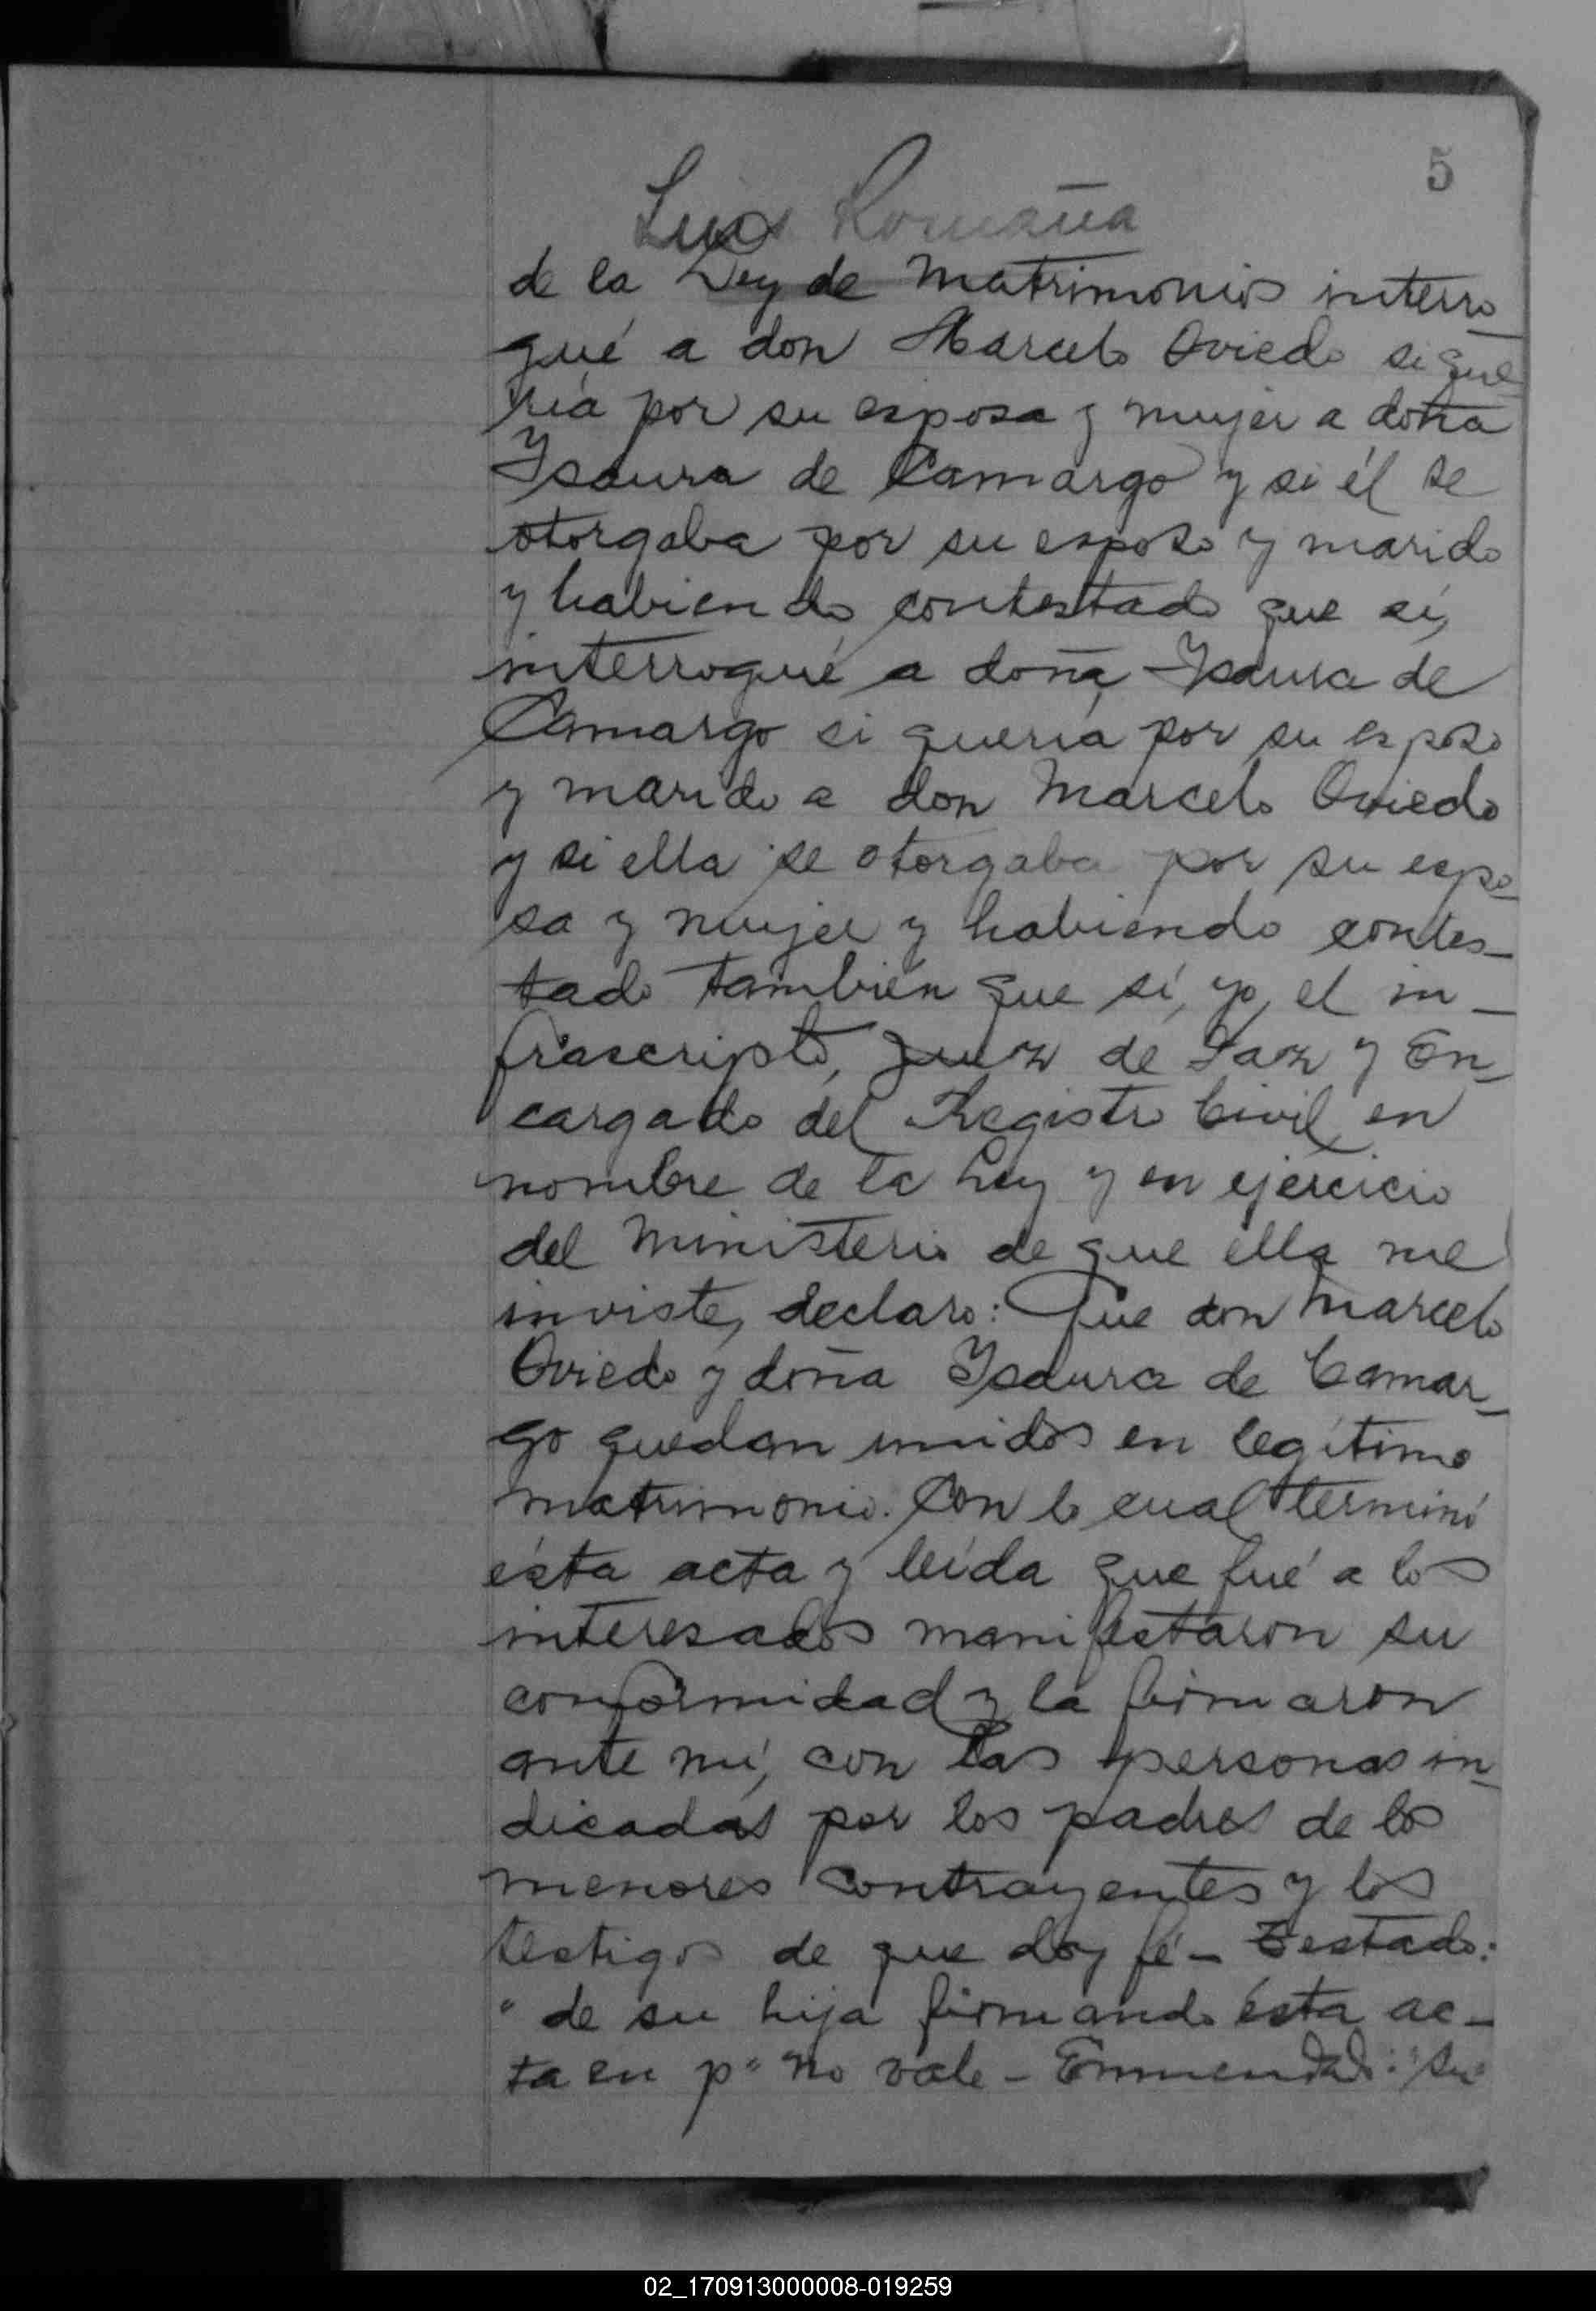 5
Luis Romaña
de la Ley de Matrimonios interro_
gué a don Marcelo Oviedo si que
ría por su esposa y mujer a doña
Ysaura de Camargo y si él se
otorgaba por su esposo y marido
y habiendo contestado que sí,
interrogué a doña Ysaura de
Camargo si quería por su esposo
y marido a don Marcelo Oviedo
y si ella se otorgaba por su espo_
sa y mujer y habiendo contes_
tado también que sí, yo, el in_
frascripto, Juez de Paz y En_
cargado del Registro Civil, en
nombre de la Ley y en ejercicio
del ministerio de que ella me
inviste, declaro: Que don Marcelo
Oviedo y doña Ysaura de Camar_
go quedan unidos en legítimo
matrimonio. Con lo cual terminó
ésta acta y leída que fué a los
interesados manifestaron su
conformidad y la firmaron
ante mí, con las personas in_
dicadas por los padres de los
menores contrayentes y los
testigos de que doy fé - Testado:
"de su hija firmando ésta ac_
ta en p" no vale - Enmendado: "su"
02_170913000008-019259